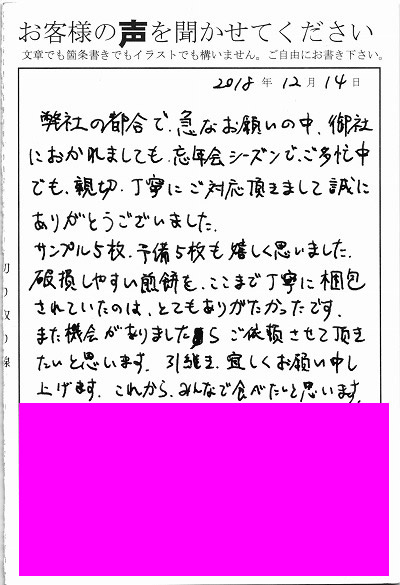 お客様の声を聞かせてください
文章でも箇条書きでもイラストでも構いません。ご自由にお書き下さい。
2018年12月14日
弊社の都合で、急なお願いの中、御社
におかれましても、忘年会シーズンで、ご多忙中
でも、親切、丁寧にご対応頂きまして誠に
ありがとうございました。
サンプル5枚、予備5枚も嬉しく思いました。
破損しやすい煎餅を、ここまで丁寧に梱包
されていたのは、とてもありがたかったです。
また機会がありましたらご依頼させて頂き
たいと思います。引継き、宜しくお願い申し
上げます。これから、みんなで食べたいと思います。
切り取り線